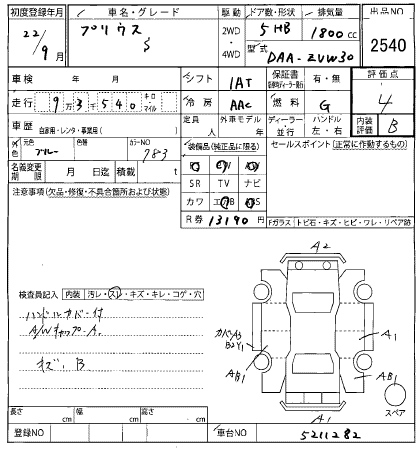 初度登録年月 車名・グレード 駆動 ドア数・形状 排気量 出品NO
22/9月 プリウス S 2WD・4WD 5 HB 1800cc 2540
型式 DAA-ZVW30
車検 年 月 シフト IAT 保証書 有・無 評価点
走行 9万3千540 キロ・マイル 冷房 AAC 燃料 G 4
車歴 自家用・レンタ・事業用( ) 定員 人 外車モデル 年 ディーラー・並行 ハンドル 左・右 内装評価 B
外色 元色 ブルー 色替 カラーNO 783 装備品(純正品に限る) セールスポイント(正常に作動するもの)
名義変更期限 月 日迄 積載 t
SR TV ナビ
注意事項(欠品・修復・不具合箇所および状態) カワ
R券 13190 円
Fガラス トビ石・キズ・ヒビ・ワレ・リペア跡
A2
検査員記入 内装 汚レ・スレ・キズ・キレ・コゲ・穴
ハンドルカバー付
A/Wキャップ-A.
キズ. B
カバA3
B2Y1
A1
AB1
スペア
A1
長さ cm 幅 cm 高さ cm
登録NO 車台NO 5211282